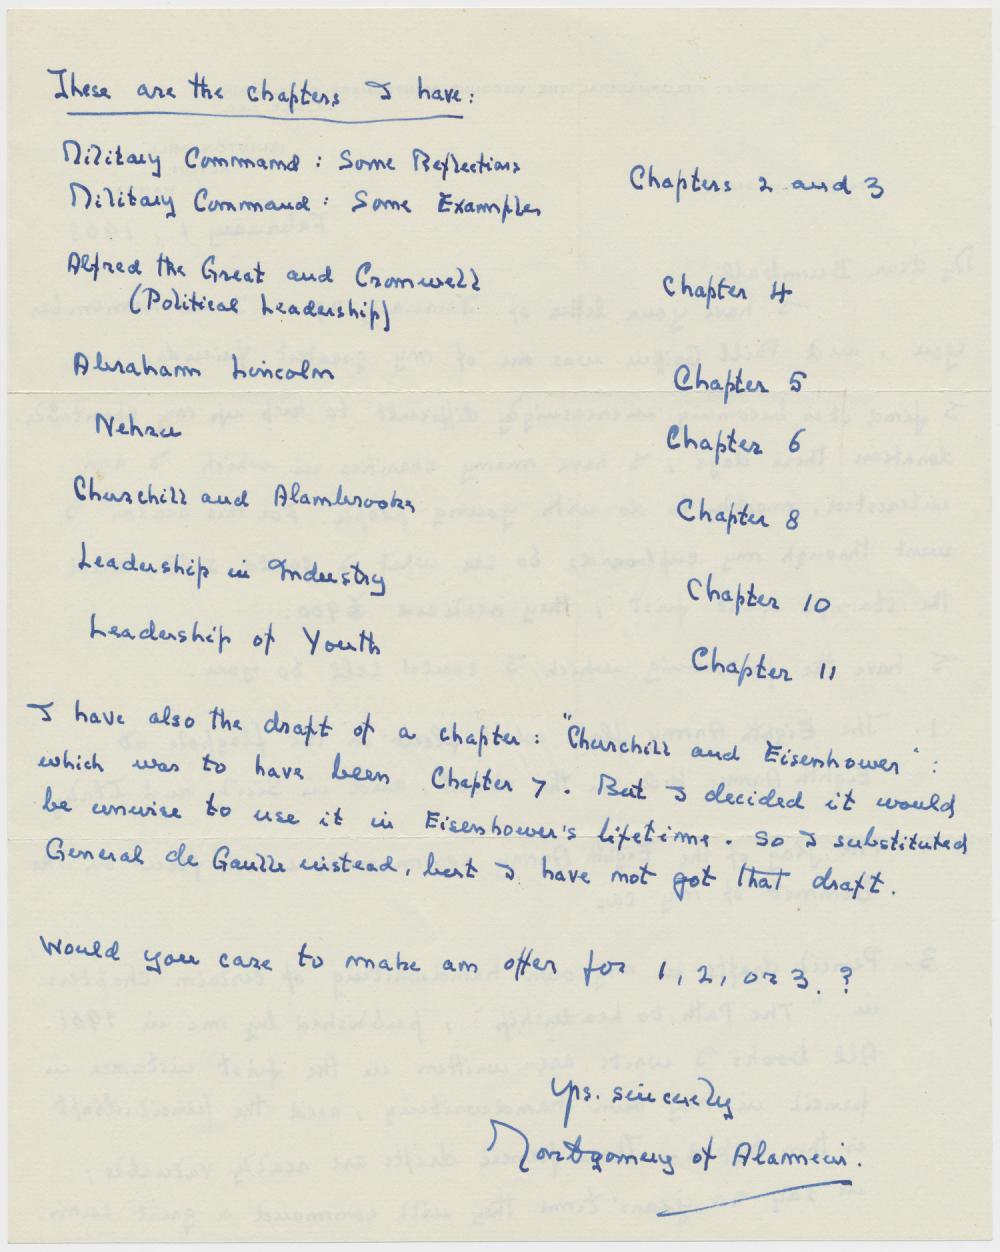 These are the chapters I have:
Military Command: Some Reflections
Military Command: Some Examples
Chapters 2 and 3
Alfred the Great and Cromwell
(Political Leadership)
Chapter 4
Abraham Lincoln
Chapter 5
Nehru
Chapter 6
Churchill and Alanbrooke
Chapter 8
Leadership in Industry
Chapter 10
Leadership of Youth
Chapter 11
I have also the draft of a chapter: "Churchill and Eisenhower":
which was to have been Chapter 7. But I decided it would
be unwise to use it in Eisenhower's lifetime. So I substituted
General de Gaulle instead, but I have not got that draft.
Would you care to make an offer for 1, 2, or 3.?
Yrs. sincerely
Montgomery of Alamein.